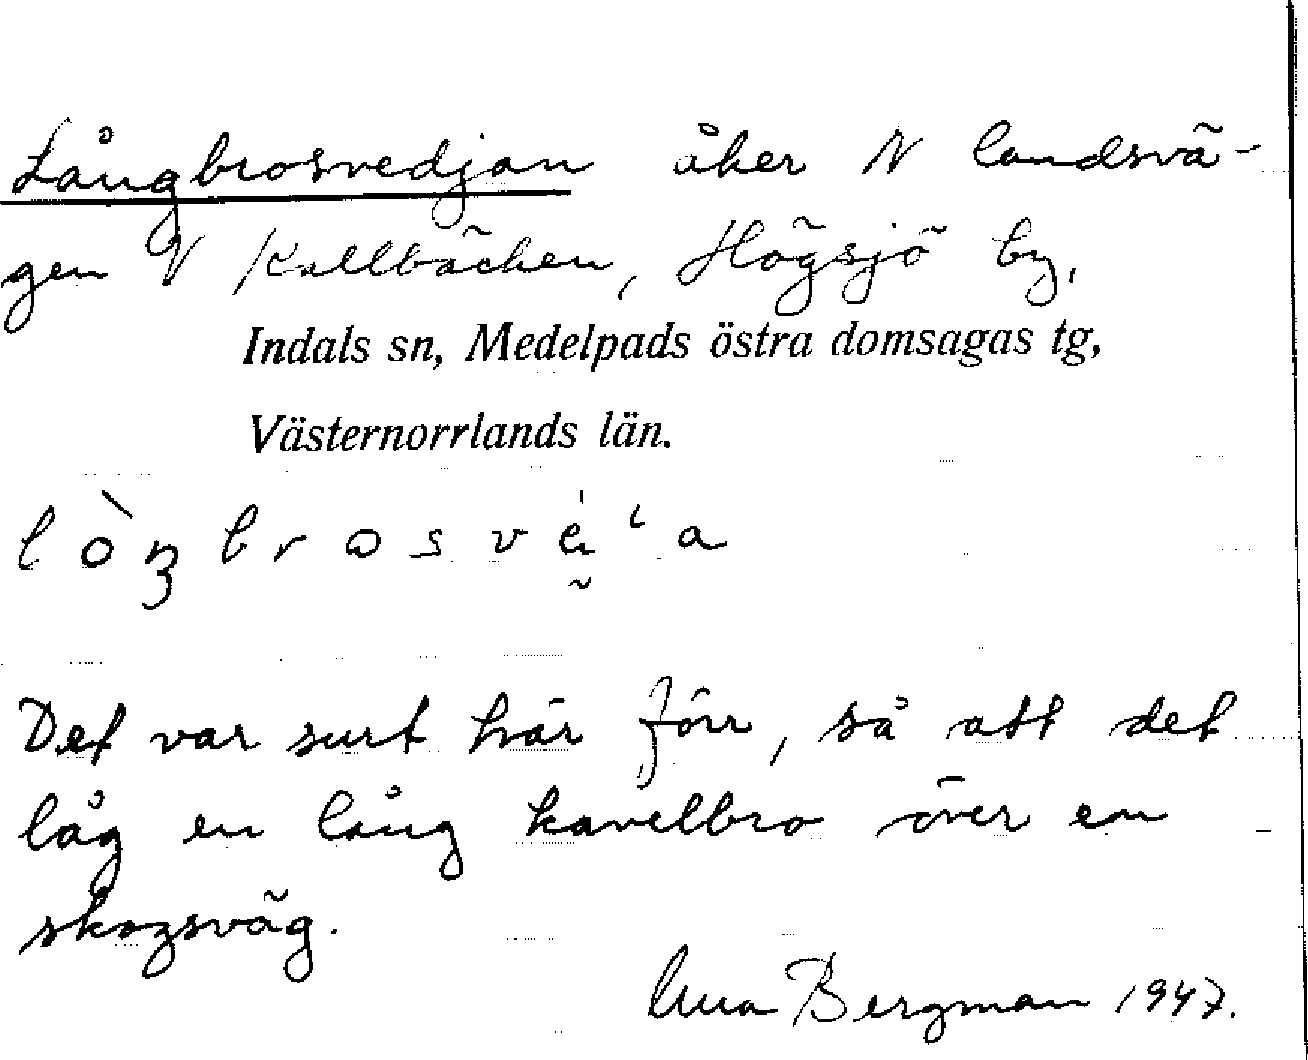 Långbrosvedjan åker N landsvä-
gen V Kallbäcken, Högsjö by,
Indals sn, Medelpads östra domsagas tg,
Västernorrlands län.
Det var surt här förr, så att det
låg en lång kavelbro över en
skogsväg.
Bergman 1947.